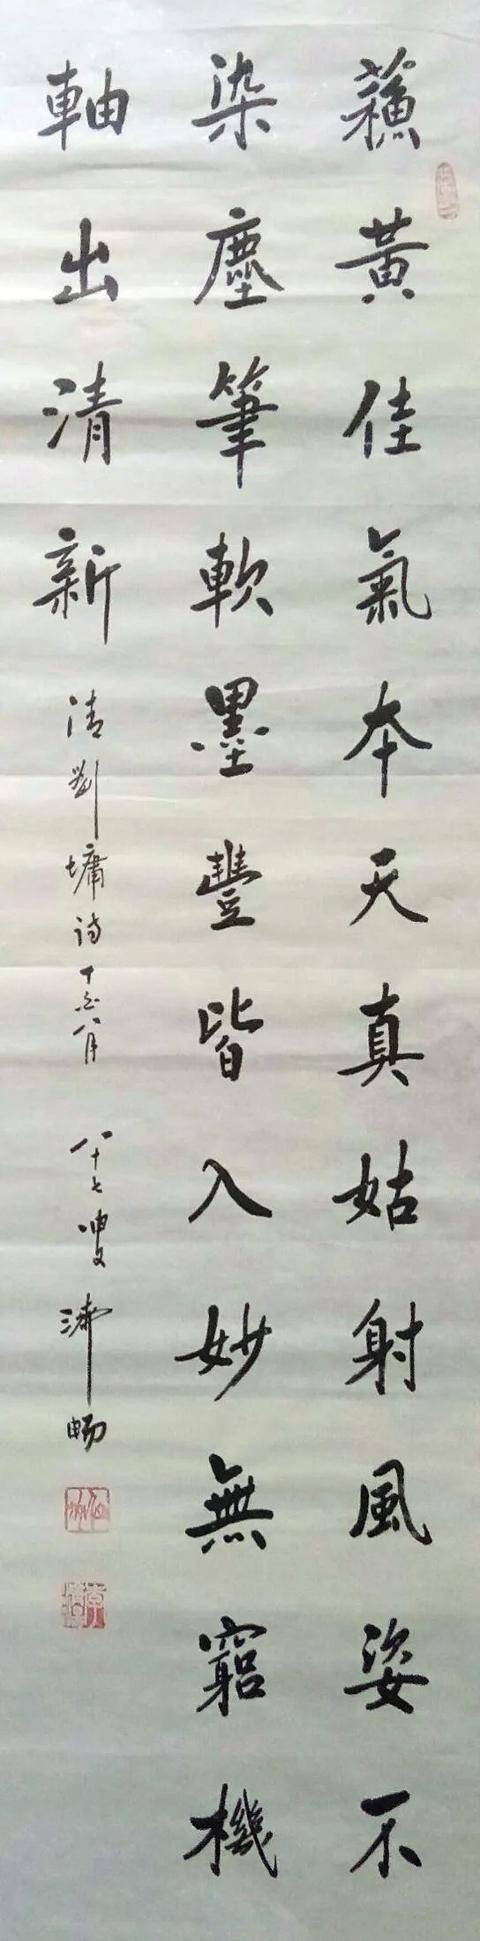 蘓黃佳氣本天真姑射風姿不
染塵筆軟墨豐皆入妙無窮機
軸出清新
清劉墉詩 八月 八十七叟 溥暢